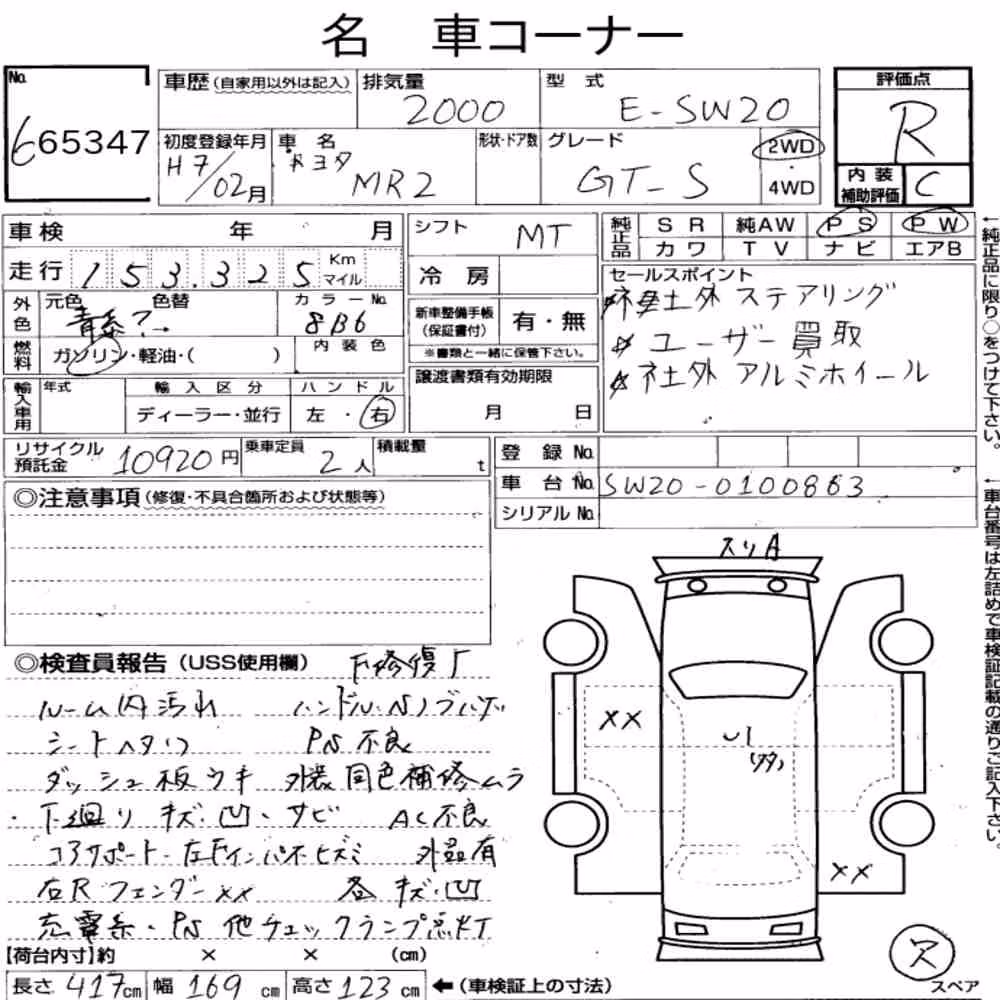 名 車コーナー
No. 665347
車歴(自家用以外は記入) 排気量 2000 型 式 E-SW20 評価点 R
初度登録年月 H7/02月 車 名 トヨタ MR2 形状・ドア数 グレード GT-S 2WD 4WD
内 装 補助評価 C
車検 年 月 シフト MT 純正品 S R 純AW P S P W
カ ワ T V ナ ビ エアB
走行 153,325 Km マイル 冷 房
セールスポイント
社外 ステアリング
ユーザー買取
社外 アルミホイール
外色 元色 色替 カラーNo. 8B6
青系?→
新車整備手帳(保証書付) 有・無
※書類と一緒に保管下さい。
燃料 ガソリン・軽油・( ) 内 装 色
譲渡書類有効期限
月 日
輸入車用 年式 輸 入 区 分 ハ ン ド ル
ディーラー・並行 左 ・ 右
リサイクル預託金 10920円 乗車定員 2人 積載量 t
登 録 No.
車 台 No. SW20-0100863
シリアルNo.
←純正品に限り○をつけて下さい。
←車台番号は左詰めで車検証記載の通りご記入下さい。
◎注意事項(修復・不具合箇所および状態等)
スリA
◎検査員報告(USS使用欄) F修復歴
ルーム内汚れ ハンドル・Nノブハゲ
シートヘタリ PS不良
ダッシュ板ウキ 外装同色補修ムラ
・下廻り キズ・凹・サビ AC不良
コアサポート・左Fインパネヒズミ 外品有
右Rフェンダーxx 各キズ・凹
充電系・PS他チェックランプ点灯
xx
xx
【荷台内寸】約 × × (cm)
長さ 417cm 幅 169cm 高さ 123cm ←(車検証上の寸法)
欠
スペア